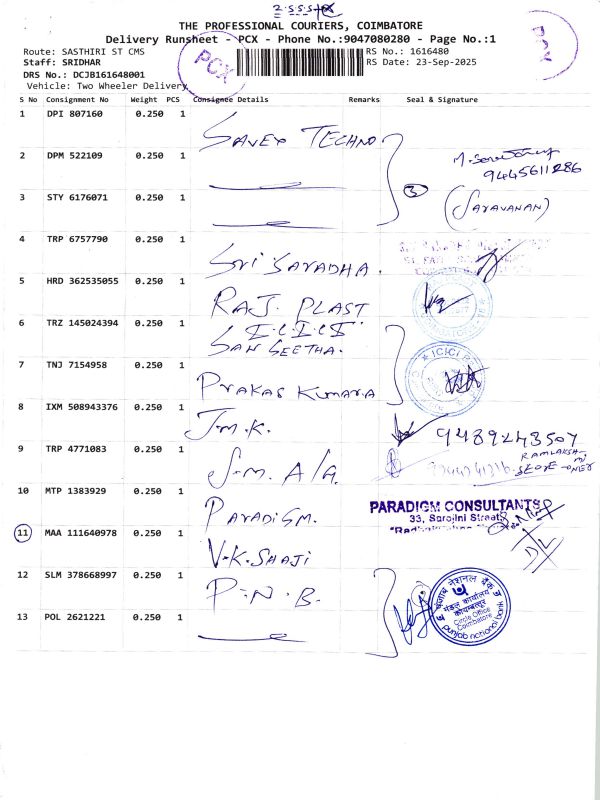 THE PROFESSIONAL COURIERS, COIMBATORE
Delivery Runsheet - PCX - Phone No.:9047080280 - Page No.:1
Route: SASTHIRI ST CMS
RS No.: 1616480
Staff: SRIDHAR
RS Date: 23-Sep-2025
DRS No.: DCJB161648001
Vehicle: Two Wheeler Delivery
PCX
PCX
S No Consignment No Weight PCS Consignee Details Remarks Seal & Signature
1 DPI 807160 0.250 1 SAVEX TECHNO
2 DPM 522109 0.250 1
9445611286
3 STY 6176071 0.250 1 3 (SARAVANAN)
4 TRP 6757790 0.250 1 SRI SARADHA.
5 HRD 362535055 0.250 1 RAJ. PLAST
6 TRZ 145024394 0.250 1 I.C.I.C.I.
SANGEETHA.
ICICI
7 TNJ 7154958 0.250 1 PRAKAS KUMARA
8 IXM 508943376 0.250 1 J.M.K.
9489243507
9 TRP 4771083 0.250 1 S.M. A/A.
10 MTP 1383929 0.250 1 PARADIGM.
PARADIGM CONSULTANTS
33, Sarojini Street
11 MAA 111640978 0.250 1 V.K.SHAJI
12 SLM 378668997 0.250 1 P.N.B.
पंजाब नेशनल बैंक
मंडल कार्यालय
कोयम्बत्तूर
Circle Office
Coimbatore
punjab national bank
13 POL 2621221 0.250 1